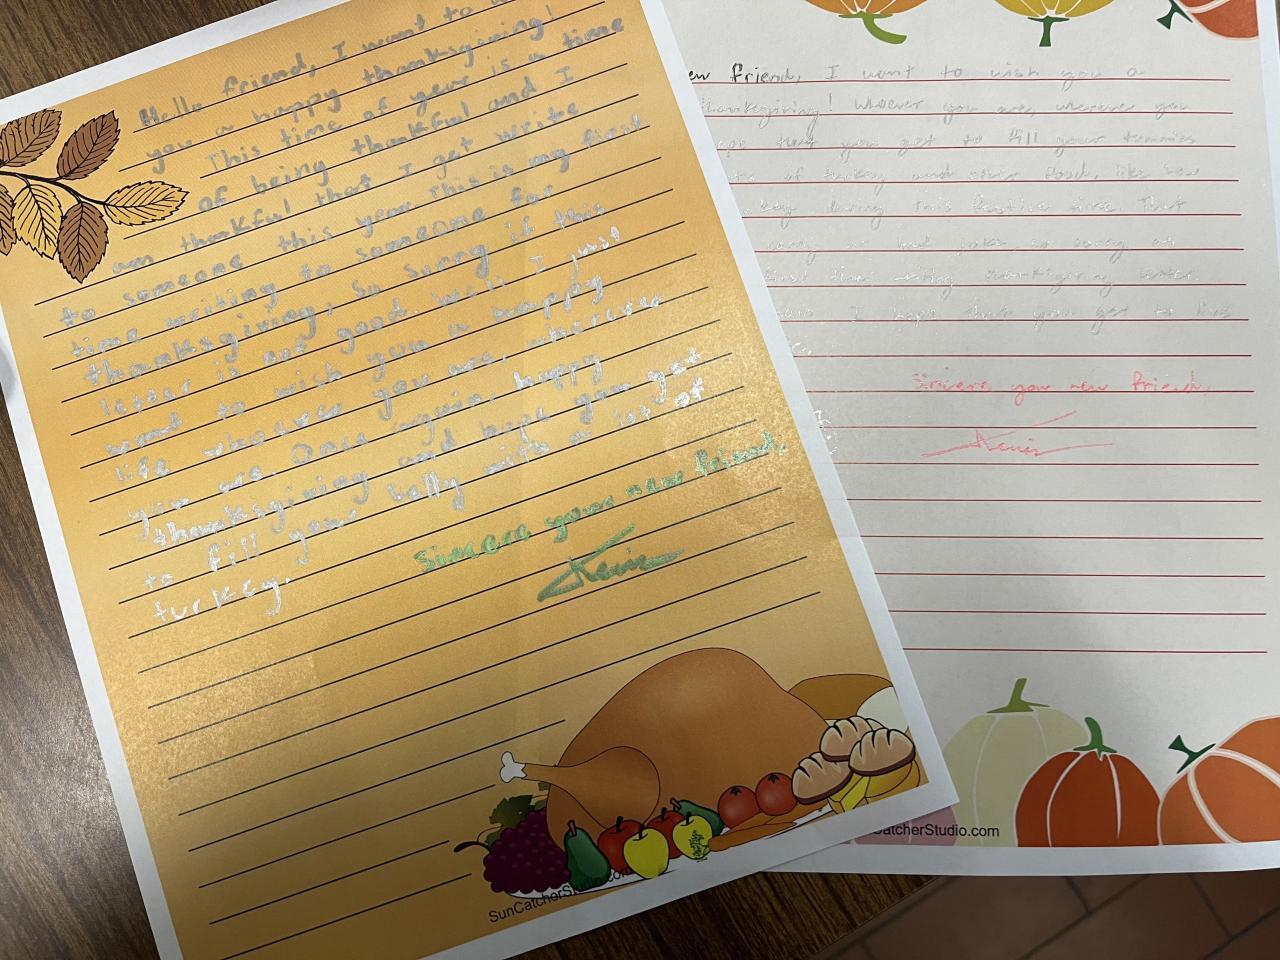 Hello friend, I want to
you a happy thanksgiving!
This time of year is a time
of being thankful and I
am thankful that I get write
to someone this year. This is my first
time writing to someone for
thanksgiving. So sorry if this
letter is not good. Well, I just
want to wish you a happy
life whoever you are, wherever
you are. Once again, happy
thanksgiving and hope you get
to fill your belly with a lot of
turkey.
Sincere your new friend,
Kevin
SunCatcherStudio.com
ew friend, I want to wish you a
thanksgiving! Whoever you are, wherever you
that you get to fill your tummies
of turkey and other food, like
during this festive time. That
bad jokes, so sorry
first time writing
I hope that you get to
Sincere your new friend,
Kevin
CatcherStudio.com